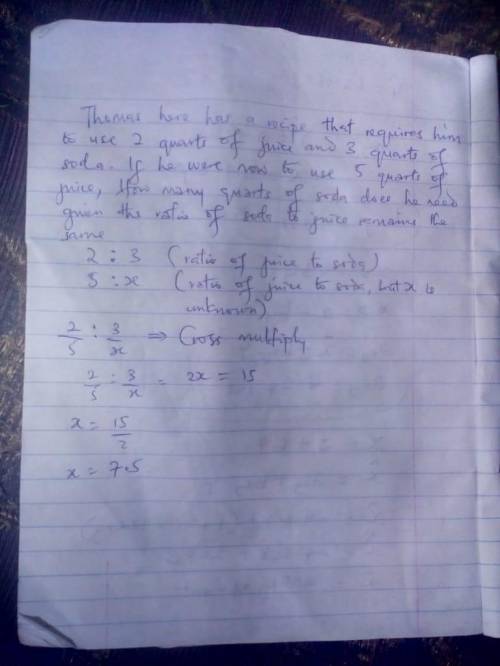 Thomas here has a recipe that requires him
to use 2 quarts of juice and 3 quarts of
soda. If he were now to use 5 quarts of
juice, How many quarts of soda does he need
given the ratio of soda to juice remains the
same
2 : 3 (ratio of juice to soda)
5 : x (ratio of juice to soda, but x is
unknown)
2/5 : 3/x ⇒ Cross multiply
2/5 : 3/x = 2x = 15
x = 15/2
x = 7.5